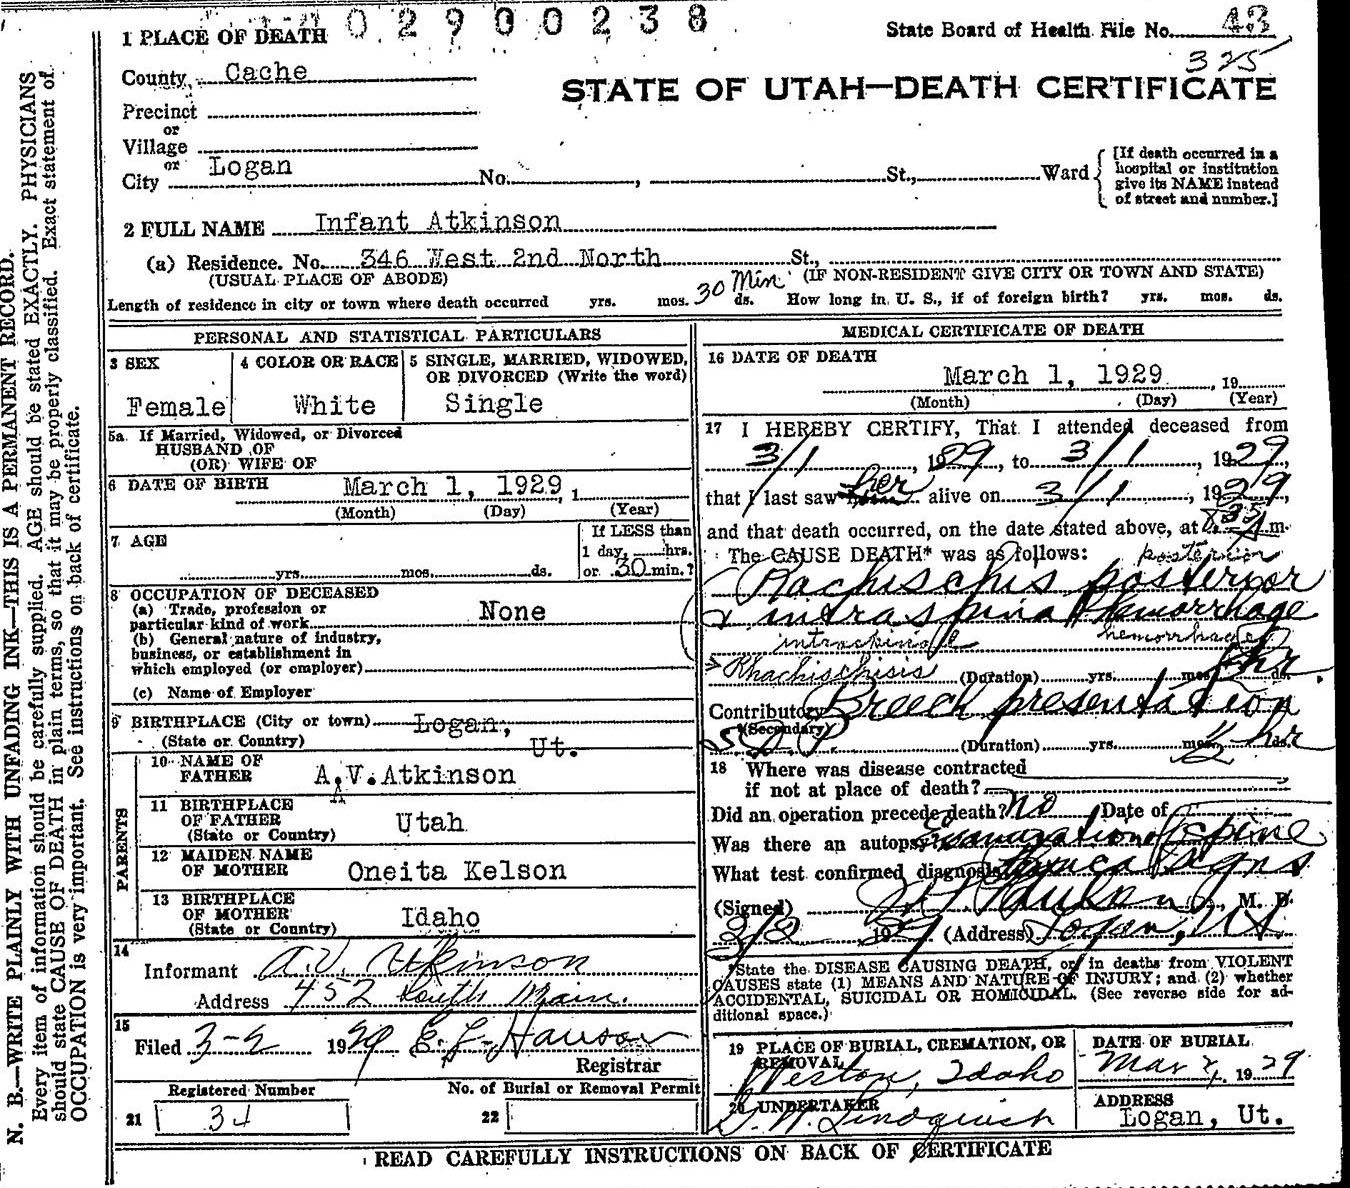 0 2 9 0 0 2 3 8
State Board of Health File No. 43
325
1 PLACE OF DEATH
County Cache
STATE OF UTAH—DEATH CERTIFICATE
Precinct
or
Village
or
City Logan No. , St., Ward
[If death occurred in a
hospital or institution
give its NAME instead
of street and number.]
2 FULL NAME Infant Atkinson
(a) Residence. No. 346 West 2nd North St.,
(USUAL PLACE OF ABODE) (IF NON-RESIDENT GIVE CITY OR TOWN AND STATE)
Length of residence in city or town where death occurred yrs. mos. 30 Min ds. How long in U. S., if of foreign birth? yrs. mos. ds.
PERSONAL AND STATISTICAL PARTICULARS
3 SEX
Female
4 COLOR OR RACE
White
5 SINGLE, MARRIED, WIDOWED,
OR DIVORCED (Write the word)
Single
5a If Married, Widowed, or Divorced
HUSBAND OF
(OR) WIFE OF
6 DATE OF BIRTH March 1, 1929, 1
(Month) (Day) (Year)
7 AGE
yrs. mos. ds.
If LESS than
1 day, hrs.
or 30 min.?
8 OCCUPATION OF DECEASED
(a) Trade, profession or
particular kind of work None
(b) General nature of industry,
business, or establishment in
which employed (or employer)
(c) Name of Employer
9 BIRTHPLACE (City or town) Logan,
(State or Country) Ut.
PARENTS
10 NAME OF
FATHER A.V. Atkinson
11 BIRTHPLACE
OF FATHER
(State or Country) Utah
12 MAIDEN NAME
OF MOTHER Oneita Kelson
13 BIRTHPLACE
OF MOTHER
(State or Country) Idaho
14
Informant A.V. Atkinson
Address 452 South Main.
15
Filed 3-2 1929 E. L. Hanson
Registrar
Registered Number
21 34
No. of Burial or Removal Permit
22
MEDICAL CERTIFICATE OF DEATH
16 DATE OF DEATH
March 1, 1929, 19
(Month) (Day) (Year)
17 I HEREBY CERTIFY, That I attended deceased from
3/1, 1929, to 3/1, 1929,
that I last saw her alive on 3/1, 1929,
and that death occurred, on the date stated above, at m.
The CAUSE DEATH* was as follows: posterior
Rachischis posterior
& intraspinal Hemorrhage
intraspinal hemorrhage
Rhachischisis (Duration) yrs. mos. hr. ds.
Contributory Breech presentation
(Secondary)
(Duration) yrs. mos. 1/2 hr ds.
18 Where was disease contracted
if not at place of death?
Did an operation precede death? no Date of
Was there an autopsy? Examination of spine
What test confirmed diagnosis? signs
(Signed) , M. D.
3/2 1929 (Address) Logan, Ut.
*State the DISEASE CAUSING DEATH, or, in deaths from VIOLENT
CAUSES state (1) MEANS AND NATURE OF INJURY; and (2) whether
ACCIDENTAL, SUICIDAL OR HOMICIDAL. (See reverse side for ad-
ditional space.)
19 PLACE OF BURIAL, CREMATION, OR
REMOVAL
Weston, Idaho
DATE OF BURIAL
Mar 2, 1929
20 UNDERTAKER
W. Lindquist
ADDRESS
Logan, Ut.
READ CAREFULLY INSTRUCTIONS ON BACK OF CERTIFICATE
N. B.—WRITE PLAINLY WITH UNFADING INK—THIS IS A PERMANENT RECORD.
Every item of information should be carefully supplied. AGE should be stated EXACTLY. PHYSICIANS
should state CAUSE OF DEATH in plain terms, so that it may be properly classified. Exact statement of
OCCUPATION is very important. See instructions on back of certificate.